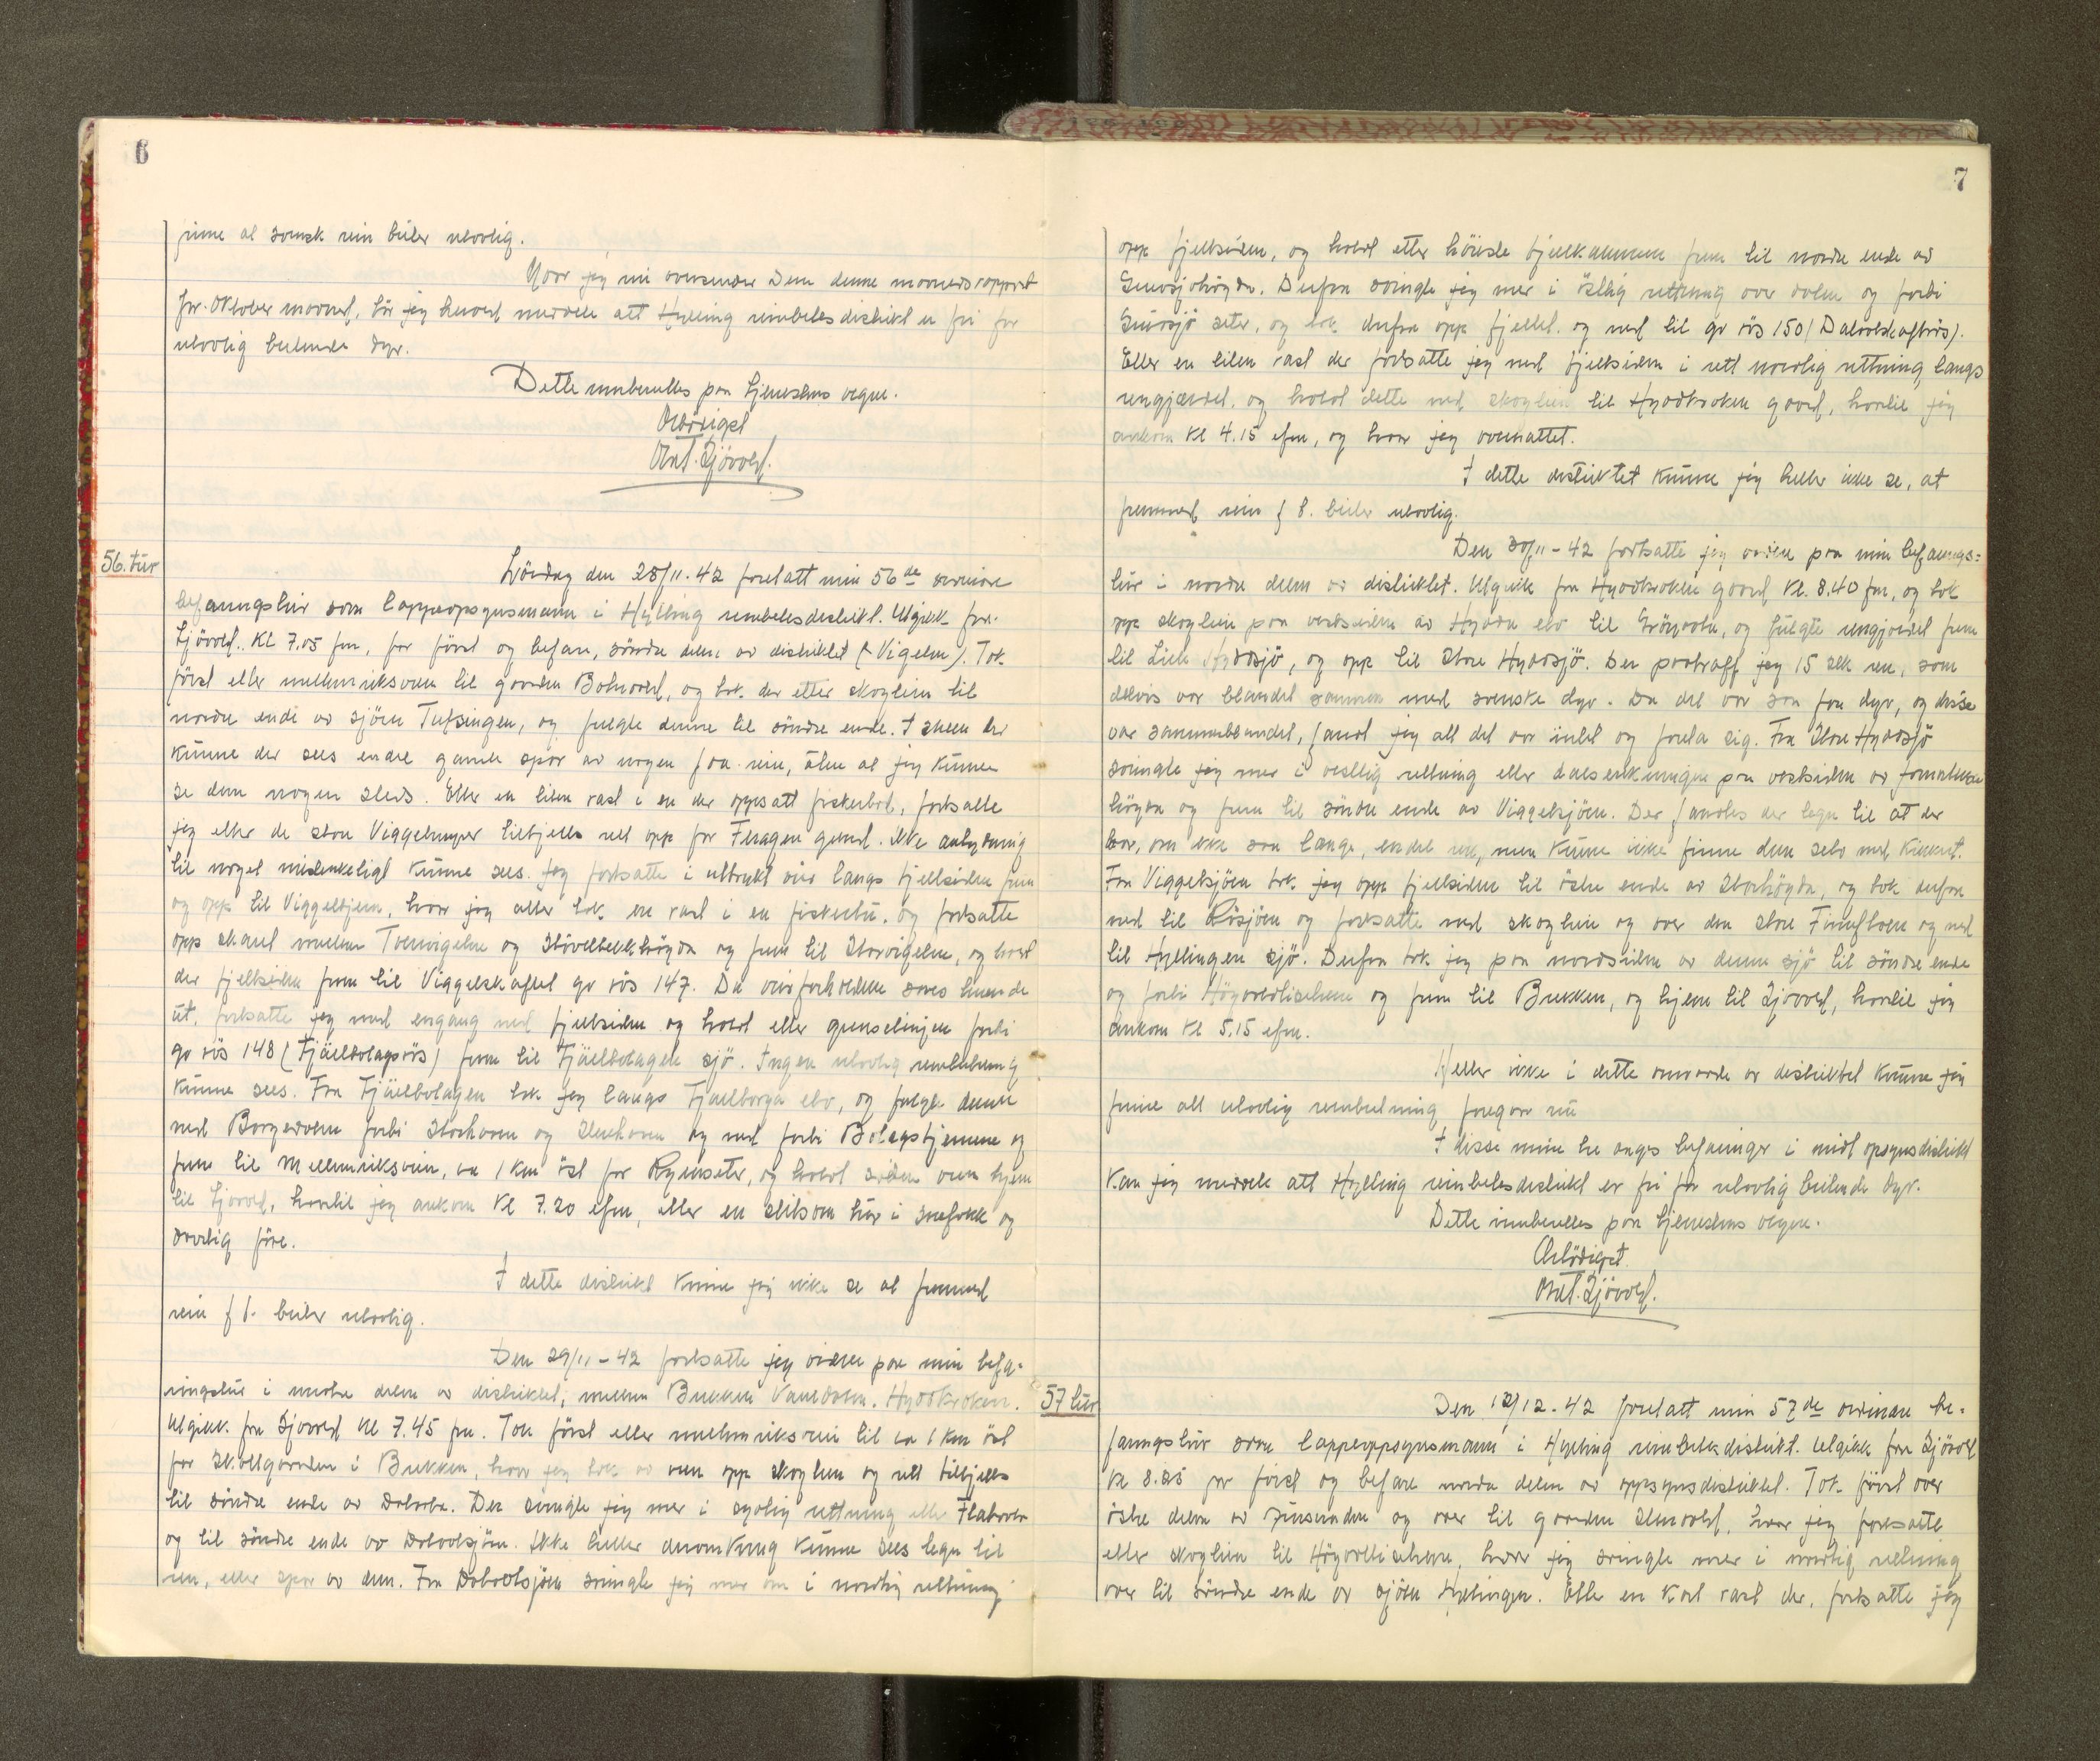 6
finne at svensk rein beiter ulovlig.
Naar jeg nu oversender Dem denne maanedsrapport
for Oktober maaned, bör jeg herved meddele att Hylling reinbeitesdistrikt er fri for
ulovlig beitende dyr.
Dette innberettes paa tjenestens vegne.
Arbödigst
Ant. Sjövold.
56. tur
Lördag den 28/11. 42 foretatt min 56de ordinære
befaringstur som lappeopsynsmann i Hylling reinbeitesdistrikt. Utgikk fra
Sjövold. Kl 7.05 fm, for först og befare, söndre delen av distriktet (Vigelen). Tok
först etter mellemriksveien til gaarden Botnvold, og tok der etter skoglien til
nordre ende av sjöen Tufsingen, og fulgte denne til söndre ende. I sneen her
kunne der sees endel gamle spor av nogen faa rein, uten at jeg kunne
se dem nogen steds. Etter en liten rast i en der oppsatt fiskerbod, fortsatte
jeg etter de store Viggelmyrer tilfjells rett opp for Feragen gaard. Ikke antydning
til noget mistenkeligt kunne sees. Jeg fortsatte i uttrykt veir langs fjellsiden frem
og opp til Viggeltjern, hvor jeg atter tok en rast i en fiskerbu, og fortsatte
opp skaret mellem Tverrvigelen og Stövelbekkhögda og frem til Storvigelen, og holdt
der fjellsiden frem til Viggelskaftet gr rös 147. Da veirforholdene saaes truende
ut, fortsatte jeg med engang ned fjellsiden og holdt etter grenselinjen forbi
gr rös 148 (Fjäelbolagsrös) frem til Fjäelbolagen sjö. Ingen ulovlig reinbeitning
kunne sees. Fra Fjäelbolagen tok jeg langs Fjäelborga elv, og fulgte denne
ned Borgervollen forbi Storhaaen og Lillehaaen og ned forbi Bolagstjernene og
frem til Mellemriksveien, ca 1 km öst for Ryenseter, og holdt siden veien hjem
til Sjövold, hvortil jeg ankom Kl 7.20 efm, etter en slitsom tur i snefokk og
daarlig före.
I dette distrikt kunne jeg ikke se at fremmed
rein f t. beiter ulovlig.
Den 29/11 - 42 fortsatte jeg videre paa min befa-
ringstur i midtre delen av distriktet, mellem Brekken Vauldalen. Hyddkroken.
Utgikk fra Sjövold Kl 7.45 fm. Tok först etter mellemriksveien til ca 1 km öst
for Skottgaarden i Brekken, hvor jeg tok av veien opp skoglien og rett tilfjells
til söndre ende av Dalvola. Der svingte jeg mer i sydlig rettning etter Flatvola
og til söndre ende av Dalvolsjöen. Ikke heller deromkring kunne sees tegn til
rein, eller spor av dem. Fra Dalvolsjöen svingte jeg mer om i nordlig rettning
7
opp fjellsiden, og holdt etter höieste fjellkammen frem til nordre ende av
Grusjöhögda. Derfra svingte jeg mer i östlig rettning over volen og forbi
Grusjö seter, og tok derfra opp fjellet og ned til gr rös 150 (Dalvolskaftrös).
Etter en liten rast der fortsatte jeg ned fjellsiden i rett nordlig rettning, langs
reingjærdet, og holdt dette ned skoglien til Hyddkroken gaard, hvortil jeg
ankom Kl 4.15 efm, og hvor jeg overnattet.
I dette distriktet kunne jeg heller ikke se, at
fremmed rein f t. beiter ulovlig.
Den 30/11 - 42 fortsatte jeg videre paa min befarings=
tur i nordre delen av distriktet. Utgikk fra Hyddkroken gaard Kl. 8.40 fm, og tok
opp skoglien paa vestsiden av Hydda elv til Gröntvola, og fulgte reingjærdet frem
til Litle Hyddsjö, og opp til Store Hyddsjö. Der paatraff jeg 15 stk rein, som
delvis var blandet sammen med svenske dyr. Da det var saa faa dyr, og disse
var sammenblandet, fandt jeg att det var intet og foreta sig. Fra Store Hyddsjö
svingte jeg mer i vestlig rettning etter dalsenkningen paa vestsiden av
högda og frem til söndre ende av Viggelsjöen. Der fandtes der tegn til at der
har, om ikke saa lange, endel rein, men kunne ikke finne dem selv med kikkert.
Fra Viggelsjöen tok jeg opp fjellsiden til östre ende av Storhögda, og tok derfra
ned til Rösjöen og fortsatte ned skoglien og over den store Finnfloen og ned
til Hyllingen sjö. Derfra tok jeg paa nordsiden av denne sjö til söndre ende
og forbi Högvoldlisetrene og frem til Brekken, og hjem til Sjövold, hvortil jeg
ankom Kl 5.15 efm.
Heller ikke i dette omraade av distriktet kunne jeg
finne att ulovlig reinbeitning foregaar nu
I disse mine tre dages befaringer i mitt opsynsdistrikt
kan jeg meddele att Hylling reinbeitesdistrikt er fri for ulovlig beitende dyr.
Dette innberettes paa tjenestens vegne.
Arbödigst.
Ant. Sjövold.
57 tur
Den 12/12. 42 foretatt min 57de ordinære be-
faringstur som lappeoppsynsmann i Hylling reinbeitedistrikt. Utgikk fra Sjövold
Kl 8.25 for först og befare nordre delen av oppsynsdistriktet. Tok först over
östre delen av Aursunden og over til gaarden Elenvold, hvor jeg fortsatte
etter skoglien til Högvollisetrene, hvor jeg svingte mer i nordlig rettning
over til söndre ende av sjöen Hyllingen. Etter en kort rast der, fortsatte jeg